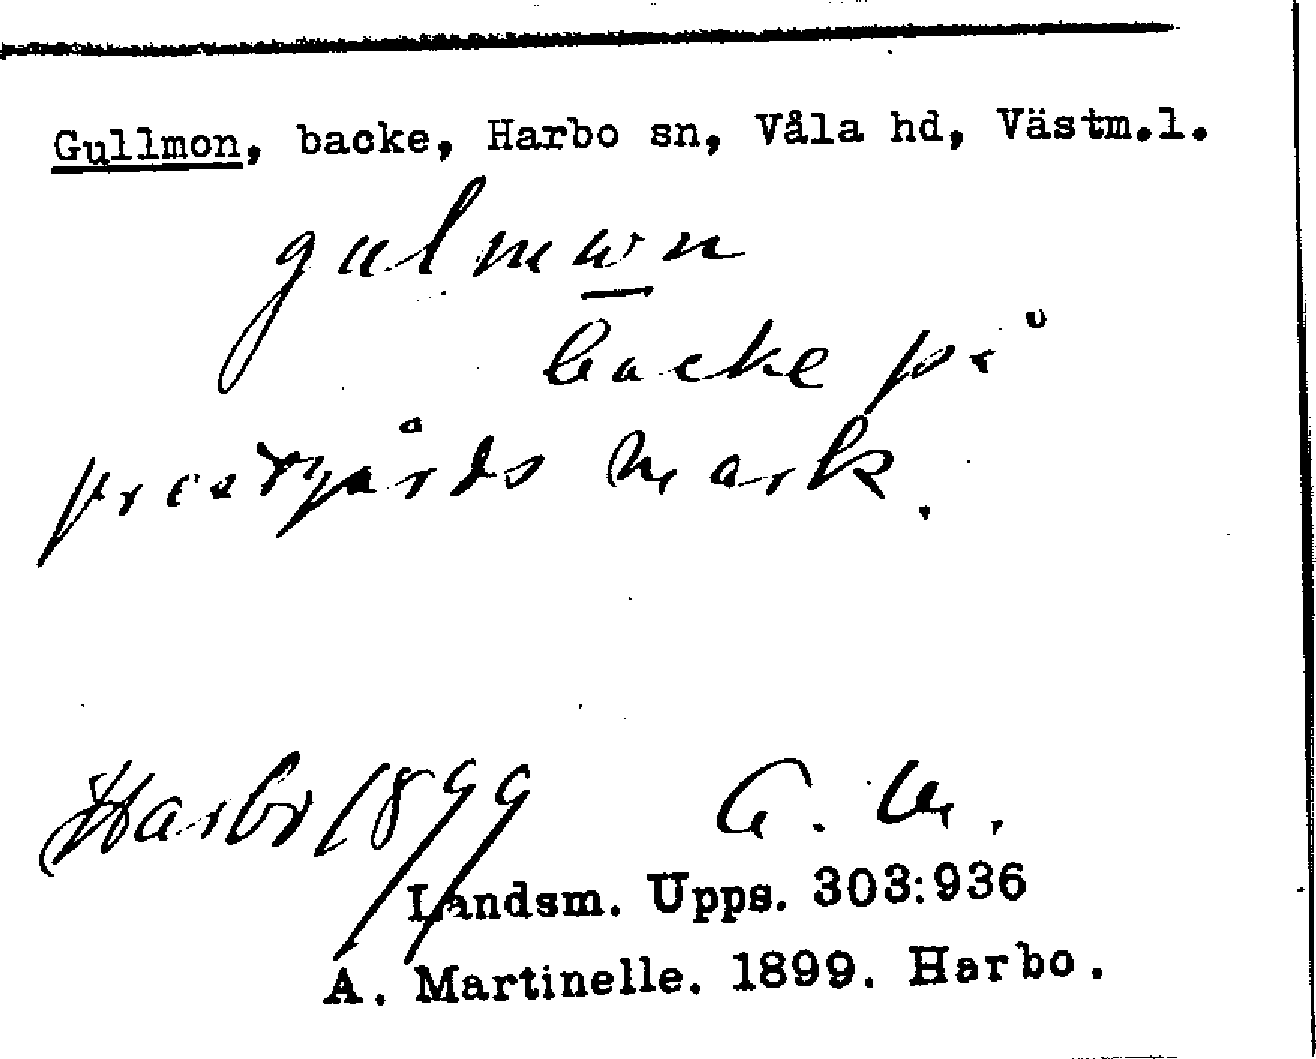 Gullmon, backe, Harbo sn, Våla hd, Västm.l.
gulmωn
backe på
prestgårds mark.
Harbo 1899 A. M.
Landsm. Upps. 303:936
A. Martinelle. 1899. Harbo.